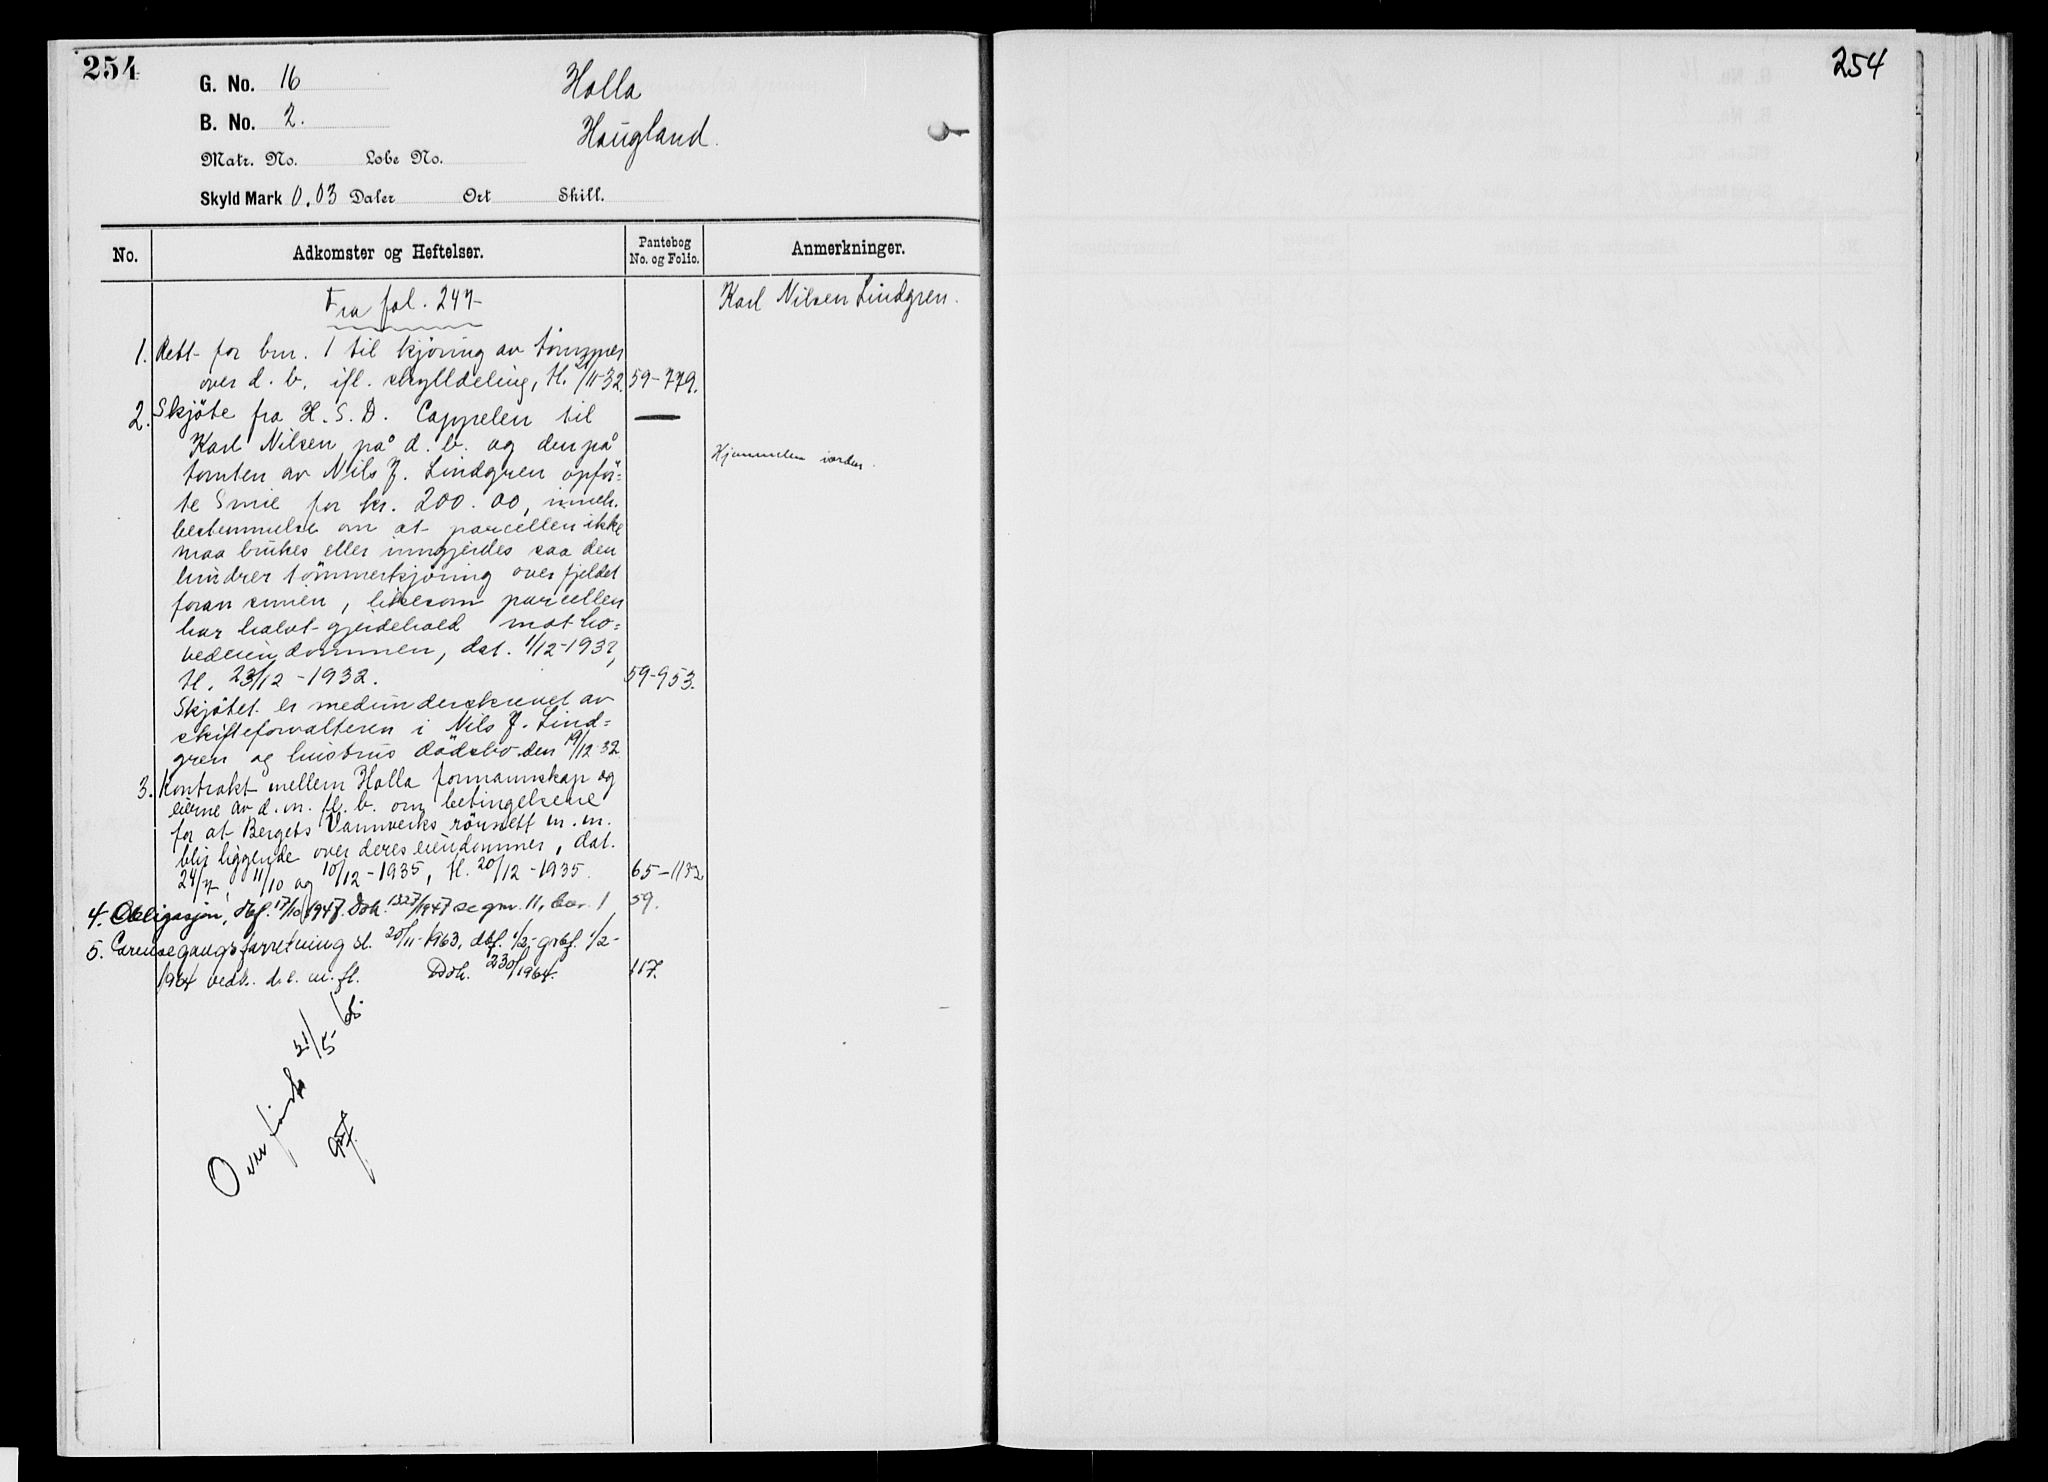 254
254
G. No. 16
Holla
B. No. 2.
Haugland.
Matr. No. Løbe No.
Skyld Mark 0.03 Daler Ort Skill.
No. Adkomster og Heftelser. Pantebog No. og Folio. Anmerkninger.
Fra fol. 247
Karl Nilsen Lindgren.
1. Rett for bnr. 1 til kjöring av tömmer
over d. b. ifl. skylddeling, tl. /11-32. 59-779.
2. Skjöte fra H. S. D. Cappelen til
Karl Nilsen på d. b. og den på
Hjemmelen i orden.
tomten av Nils J. Lindgren opför=
te Smie for kr. 200.00, inneh.
bestemmelse om at parcellen ikke
maa brukes eller inngjerdes saa den
hindrer tömmerkjöring over fjeldet
foran smien, likesom parcellen
har halvt gjerdehold mot ho=
vedeiendommen, dat. 1/12-1932,
tl. 23/12-1932. 59-953.
Skjötet er medunderskrevet av
skifteforvalteren i Nils J. Lind=
gren og hustrus dödsbo den 19/12-32
3. Kontrakt mellem Holla formannskap og
eierne av d. m. fl. b. om betingelsene
for at Bergets Vannverks rörnett m. m.
blir liggende over deres eiendommer, dat.
24/7, 11/10 og 10/12-1935, tl. 20/12-1935. 65-1132
4. Obligasjon, dbf. 17/10 1947. Dok. 1327/1947 se gnr. 11, bnr. 1 59.
5. Grensegangsforretning sl. 20/11-1963, dbf. 1/2- grbf. 1/2-
1964 vedk. d. b. m. fl. Dok. 230/1964. 117.
Overfört 21/5-